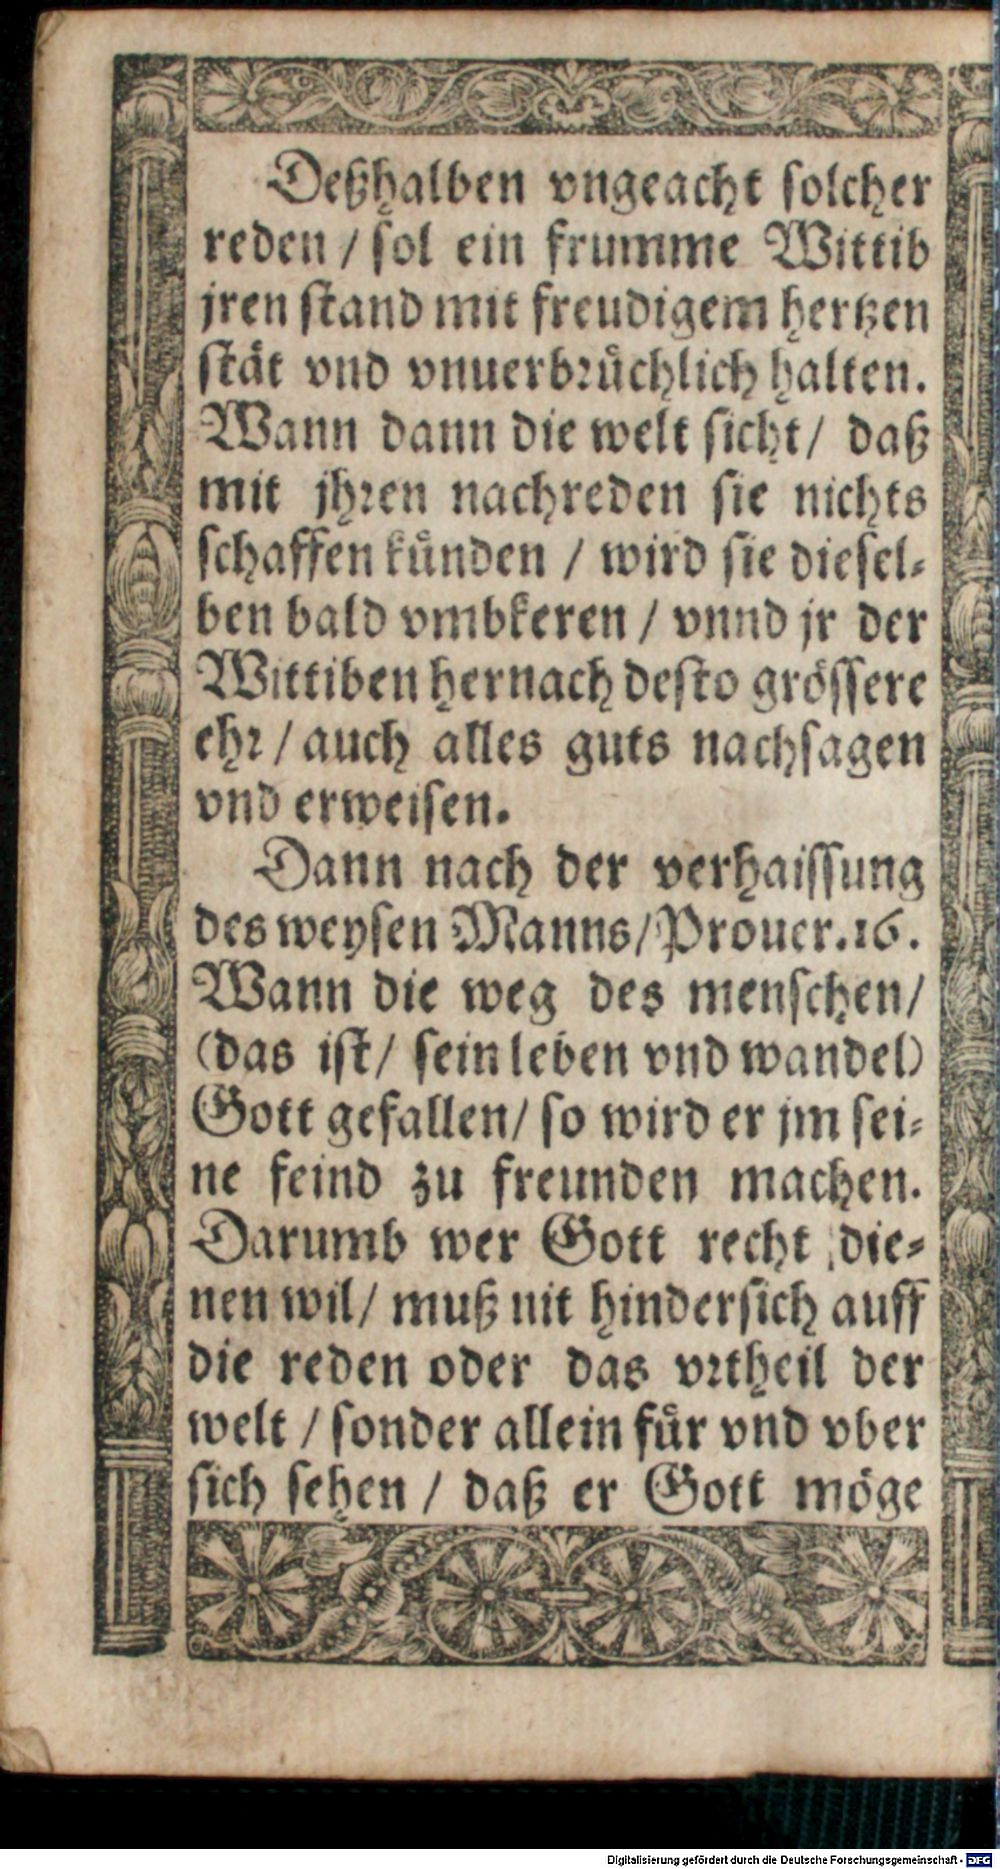 Deßhalben vngeacht solcher
reden / sol ein frumme Wittib
jren stand mit freudigem hertzen
stät vnd vnuerbrüchlich halten.
Wann dann die welt sicht / daß
mit jhren nachreden sie nichts
schaffen künden / wird sie diesel-
ben bald vmbkeren / vnnd jr der
Wittiben hernach desto grössere
ehr / auch alles guts nachsagen
vnd erweisen.
Dann nach der verhaissung
des weysen Manns / Prouer. 16.
Wann die weg des menschen /
(das ist / sein leben vnd wandel)
Gott gefallen / so wird er jm sei-
ne feind zu freunden machen.
Darumb wer Gott recht die-
nen wil / muß nit hindersich auff
die reden oder das vrtheil der
welt / sonder allein für vnd vber
sich sehen / daß er Gott möge
Digitalisierung gefördert durch die Deutsche Forschungsgemeinschaft - DFG